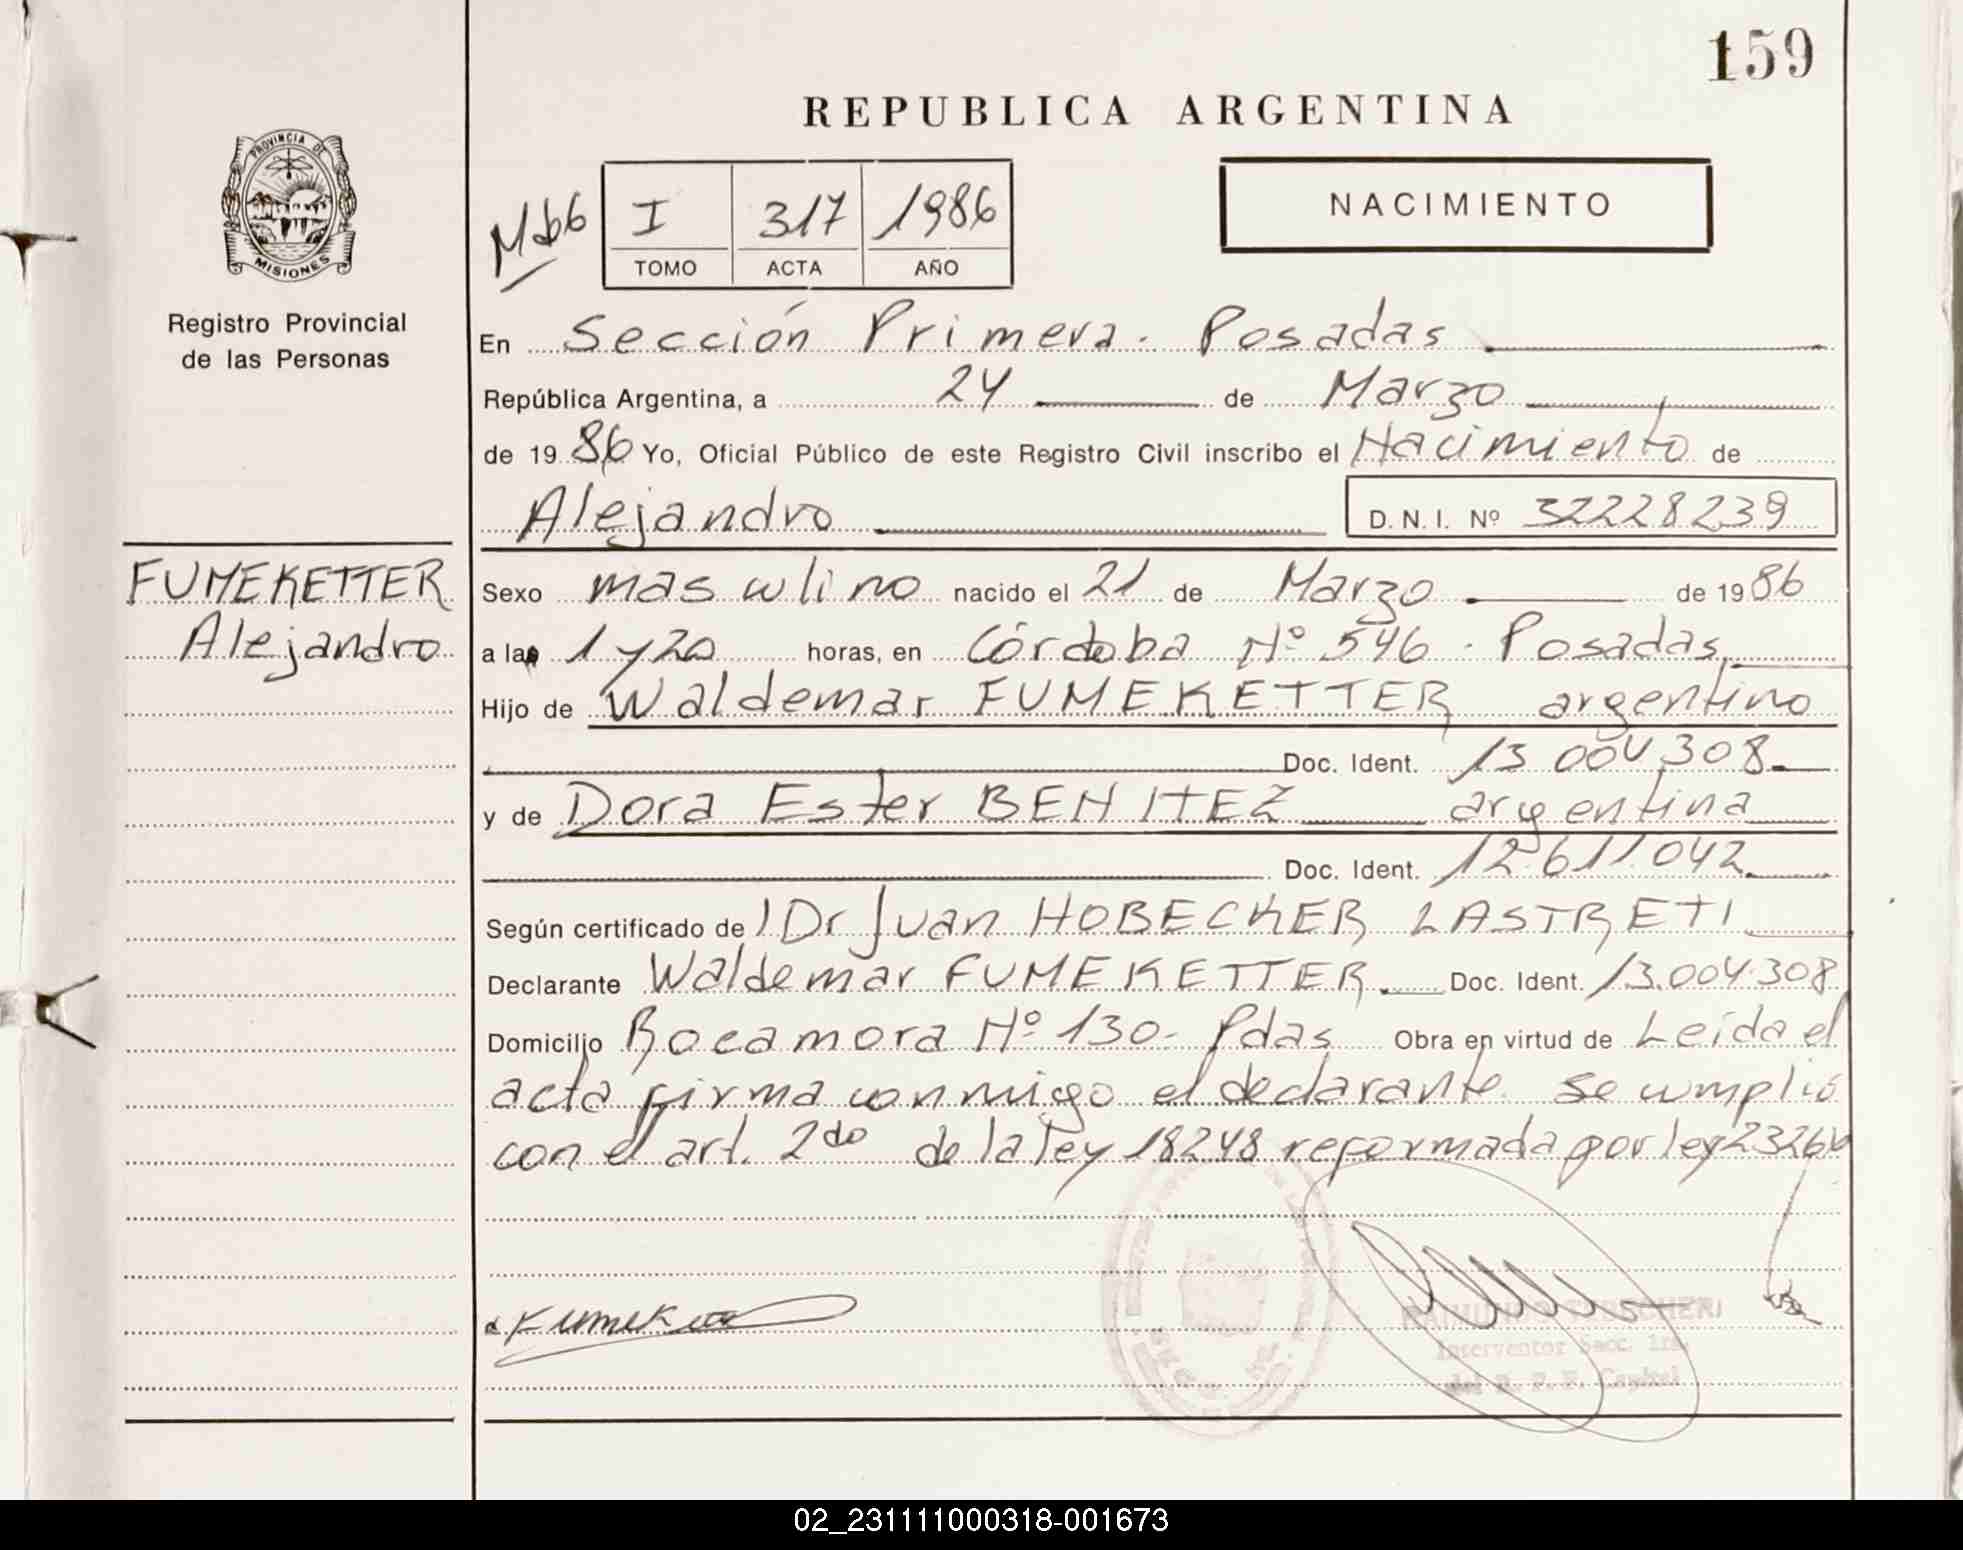 159
REPUBLICA ARGENTINA
PROVINCIA DE
MISIONES
Registro Provincial
de las Personas
I 317 1986
TOMO ACTA AÑO
NACIMIENTO
En Sección Primera. Posadas
República Argentina, a 24 de Marzo
de 1986 Yo, Oficial Público de este Registro Civil inscribo el Nacimiento de
Alejandro D.N.I. Nº 32228239
FUMEKETTER
Alejandro
Sexo masculino nacido el 21 de Marzo de 1986
a las 1 y 20 horas, en Córdoba Nº 546 - Posadas,
Hijo de Waldemar FUMEKETTER argentino
Doc. Ident. 13.004.308
y de Dora Ester BENITEZ argentina
Doc. Ident. 12.611.042
Según certificado de Dr Juan HOBECKER LASTRETI
Declarante Waldemar FUMEKETTER. Doc. Ident. 13.004.308
Domicilio Rocamora Nº 130- Pdas Obra en virtud de Leída el
acta firma conmigo el declarante. Se cumplió
con el art. 2do de la ley 18248 reformada por ley
Interventor Secc. 1ra.
Capital
02_231111000318-001673